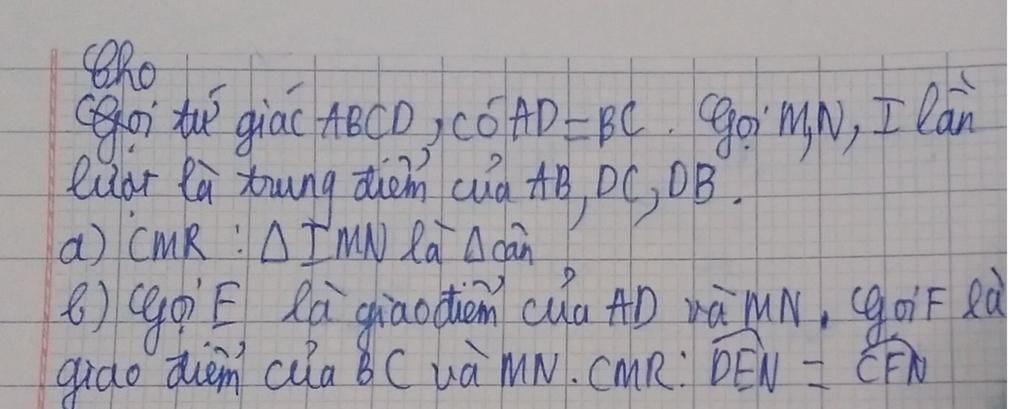 Cho
Gọi tứ giác ABCD, có AD = BC. Gọi M, N, I lần
lượt là trung điểm của AB, DC, DB.
a) CMR : Δ IMN là Δ cân
b) Gọi E là giao điểm của AD và MN. Gọi F là
giao điểm của BC và MN. CMR: \widehat{DEN} = \widehat{CFN}